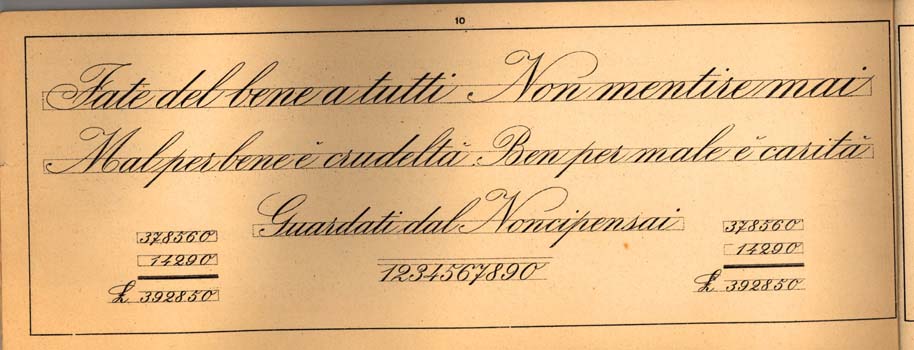 10
Fate del bene a tutti Non mentire mai
Mal per bene è crudeltà. Ben per male è carità
Guardati dal Noncipensai
378560 378560
14290 1234567890 14290
£ 392850 £ 392850